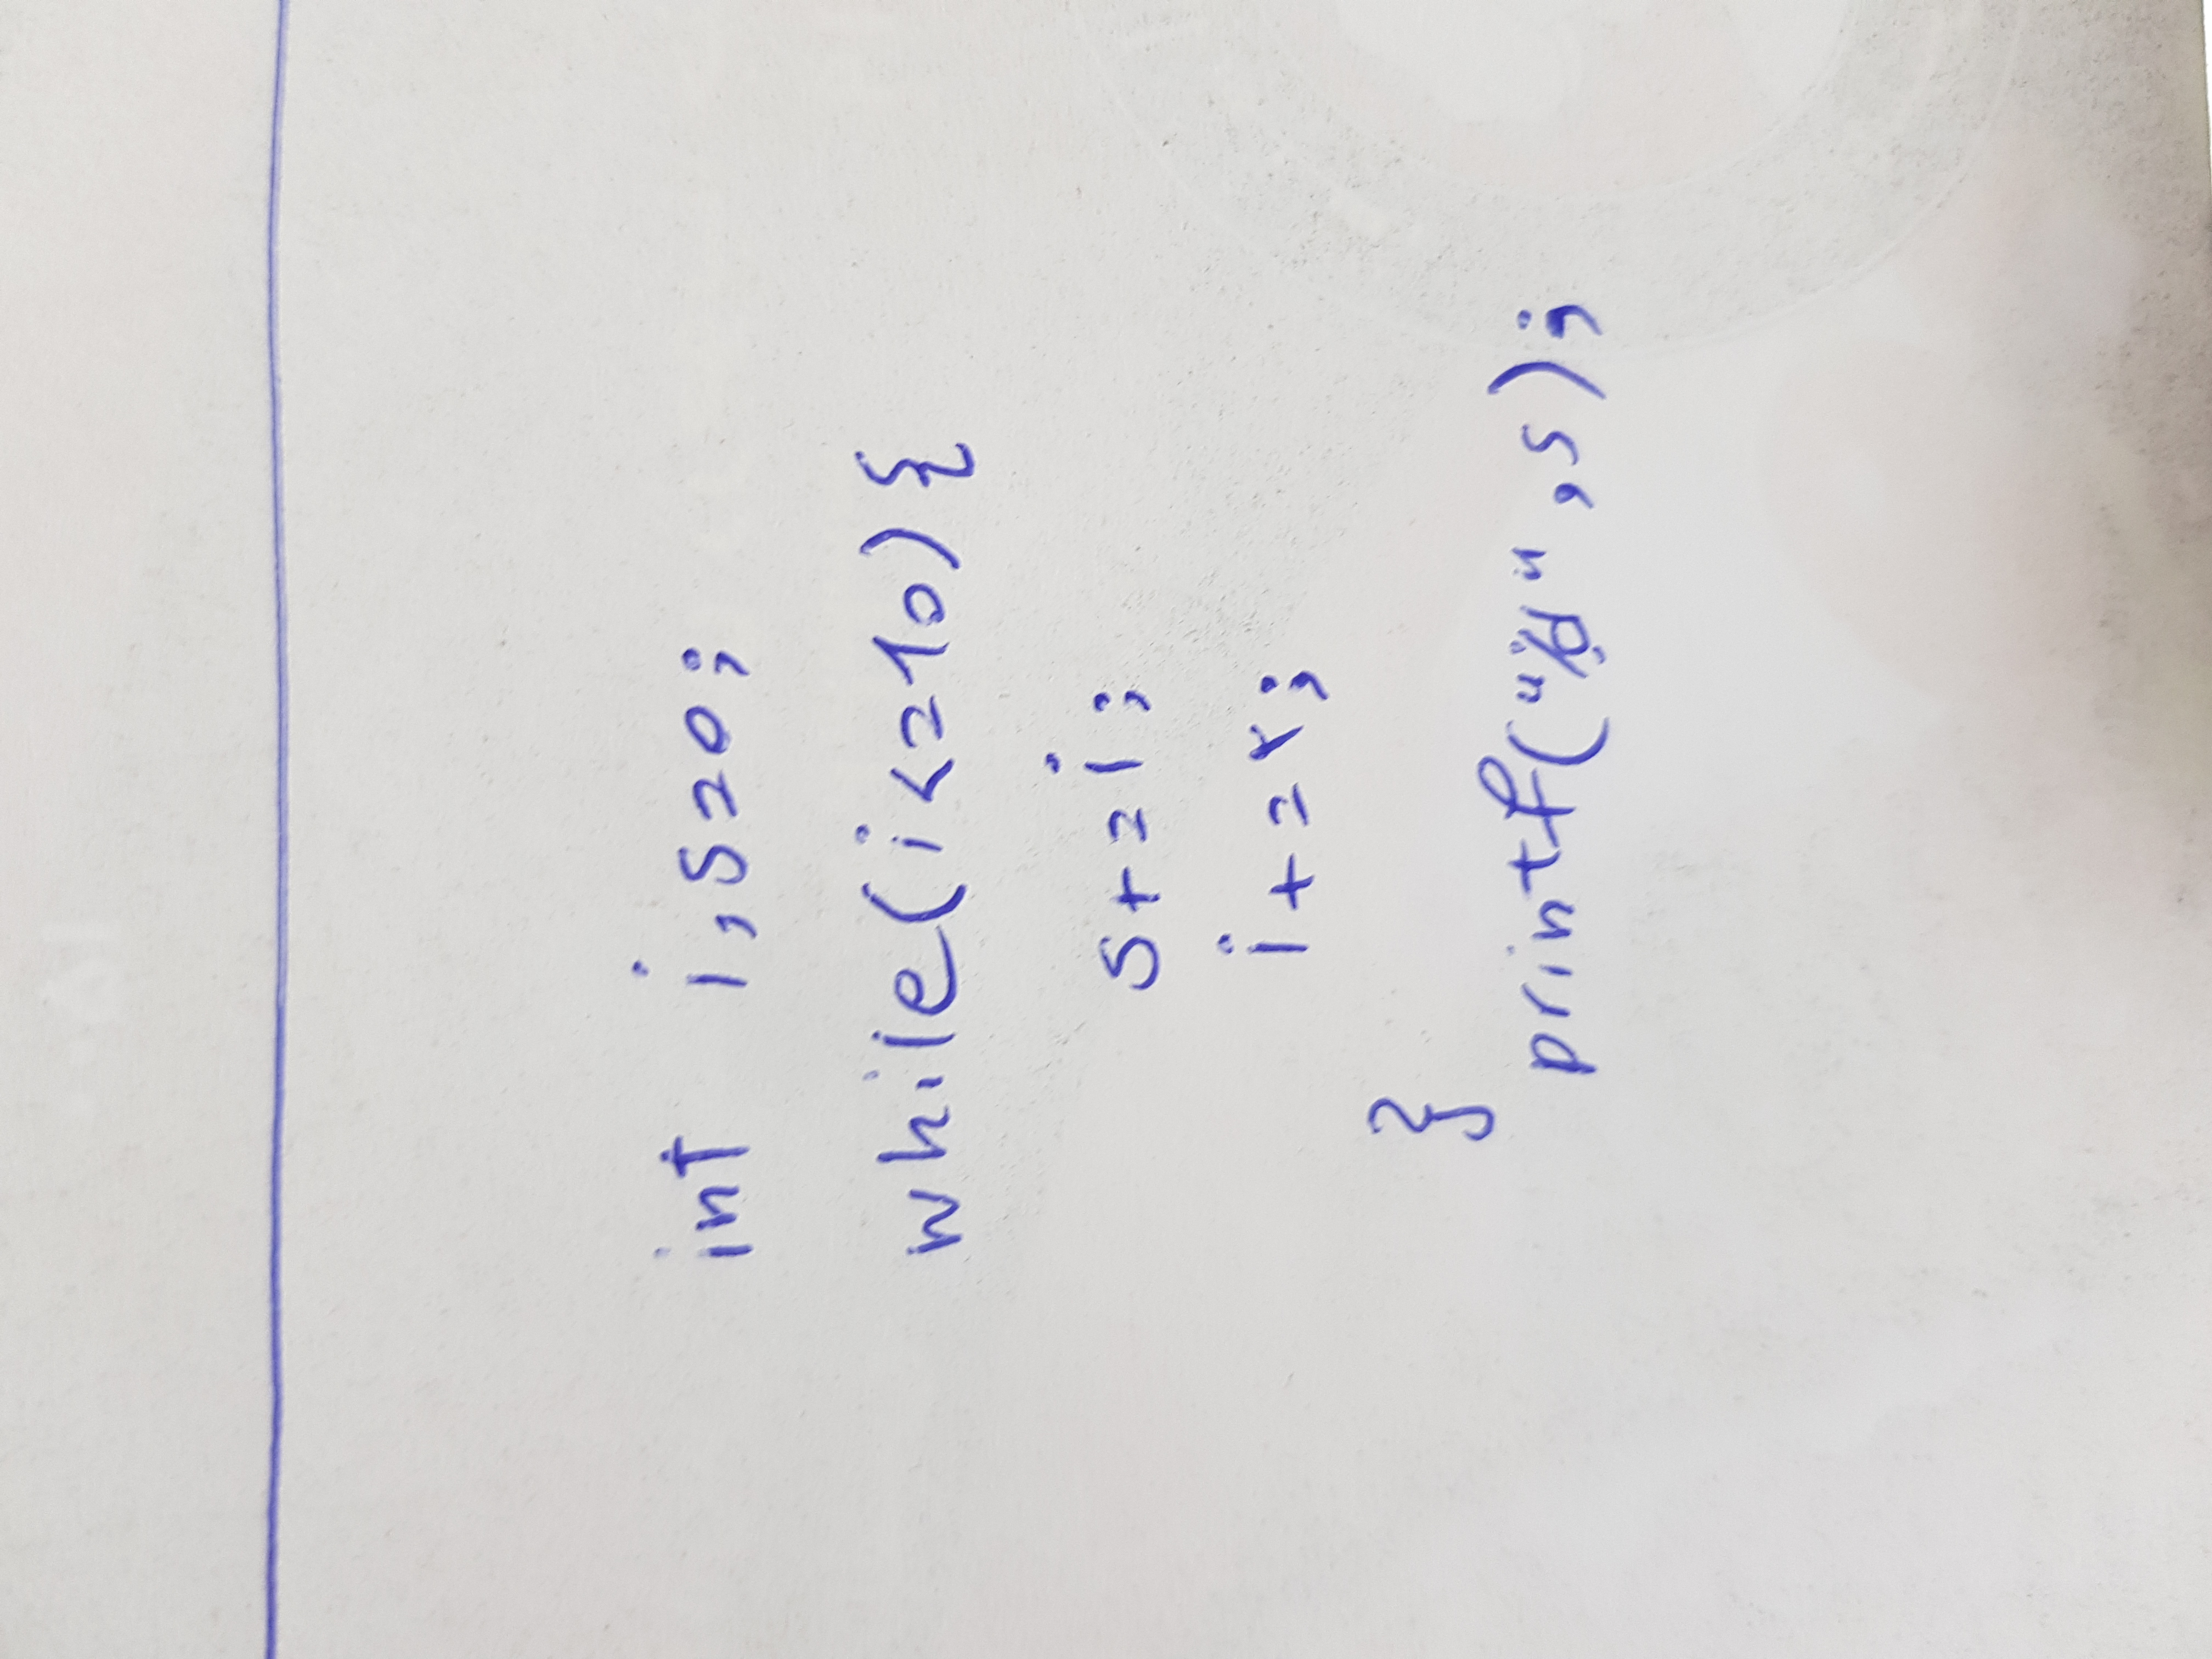 int i,s=0;
while(i<=10){
s+=i;
i+=۲;
}
printf("%d",s);